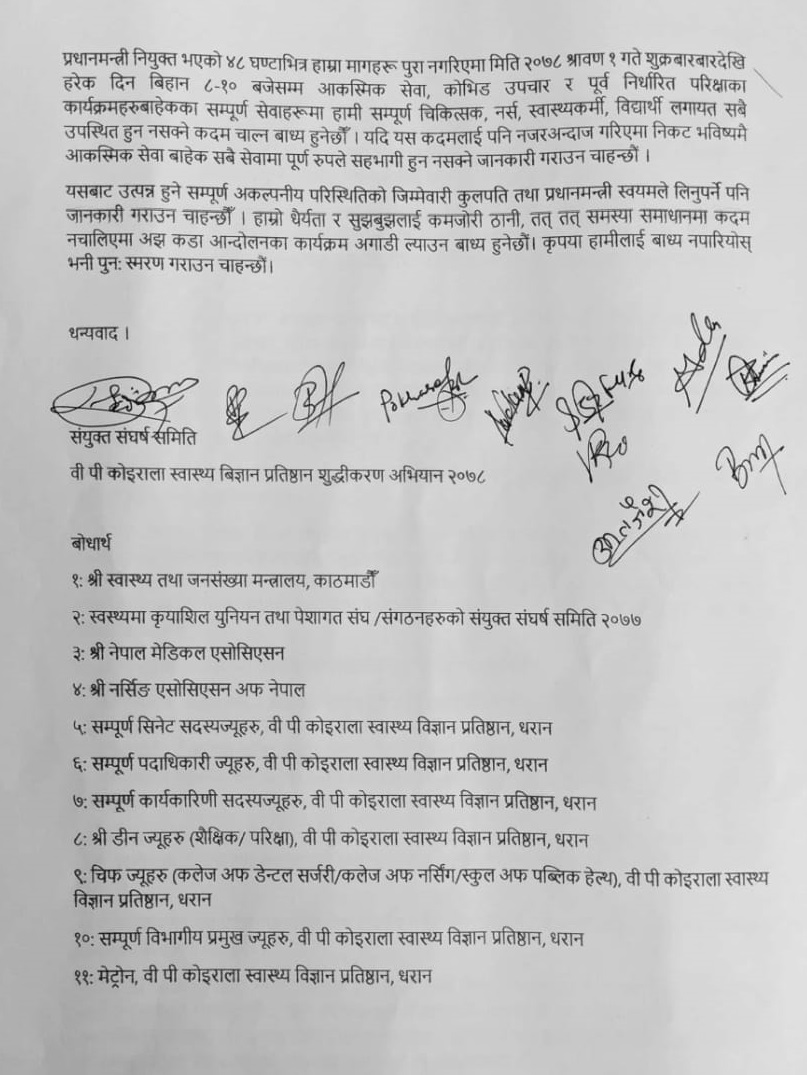 प्रधानमन्त्री नियुक्त भएको ४८ घण्टाभित्र हाम्रा मागहरू पुरा नगरिएमा मिति २०७८ श्रावण १ गते शुक्रबारबारदेखि
हरेक दिन बिहान ८-१० बजेसम्म आकस्मिक सेवा, कोभिड उपचार र पूर्व निर्धारित परिक्षाका
कार्यक्रमहरुबाहेकका सम्पूर्ण सेवाहरूमा हामी सम्पूर्ण चिकित्सक, नर्स, स्वास्थ्यकर्मी, विद्यार्थी लगायत सबै
उपस्थित हुन नसक्ने कदम चाल्न बाध्य हुनेछौँ । यदि यस कदमलाई पनि नजरअन्दाज गरिएमा निकट भविष्यमै
आकस्मिक सेवा बाहेक सबै सेवामा पूर्ण रुपले सहभागी हुन नसक्ने जानकारी गराउन चाहन्छौं ।
यसबाट उत्पन्न हुने सम्पूर्ण अकल्पनीय परिस्थितिको जिम्मेवारी कुलपति तथा प्रधानमन्त्री स्वयमले लिनुपर्ने पनि
जानकारी गराउन चाहन्छौँ । हाम्रो धैर्यता र सुझबुझलाई कमजोरी ठानी, तत् तत् समस्या समाधानमा कदम
नचालिएमा अझ कडा आन्दोलनका कार्यक्रम अगाडी ल्याउन बाध्य हुनेछौं। कृपया हामीलाई बाध्य नपारियोस्
भनी पुन: स्मरण गराउन चाहन्छौं।
धन्यवाद ।
संयुक्त संघर्ष समिति
वी पी कोइराला स्वास्थ्य बिज्ञान प्रतिष्ठान शुद्धीकरण अभियान २०७८
बोधार्थ
१: श्री स्वास्थ्य तथा जनसंख्या मन्त्रालय, काठमाडौँ
२: स्वस्थ्यमा कृयाशिल युनियन तथा पेशागत संघ /संगठनहरुको संयुक्त संघर्ष समिति २०७७
३: श्री नेपाल मेडिकल एसोसिएसन
४: श्री नर्सिङ एसोसिएसन अफ नेपाल
५: सम्पूर्ण सिनेट सदस्यज्यूहरु, वी पी कोइराला स्वास्थ्य विज्ञान प्रतिष्ठान, धरान
६: सम्पूर्ण पदाधिकारी ज्यूहरु, वी पी कोइराला स्वास्थ्य विज्ञान प्रतिष्ठान, धरान
७: सम्पूर्ण कार्यकारिणी सदस्यज्यूहरु, वी पी कोइराला स्वास्थ्य विज्ञान प्रतिष्ठान, धरान
८: श्री डीन ज्यूहरु (शैक्षिक/ परिक्षा), वी पी कोइराला स्वास्थ्य विज्ञान प्रतिष्ठान, धरान
९: चिफ ज्यूहरु (कलेज अफ डेन्टल सर्जरी/कलेज अफ नर्सिंग/स्कुल अफ पब्लिक हेल्थ), वी पी कोइराला स्वास्थ्य
विज्ञान प्रतिष्ठान, धरान
१०: सम्पूर्ण विभागीय प्रमुख ज्यूहरु, वी पी कोइराला स्वास्थ्य विज्ञान प्रतिष्ठान, धरान
११: मेट्रोन, वी पी कोइराला स्वास्थ्य विज्ञान प्रतिष्ठान, धरान